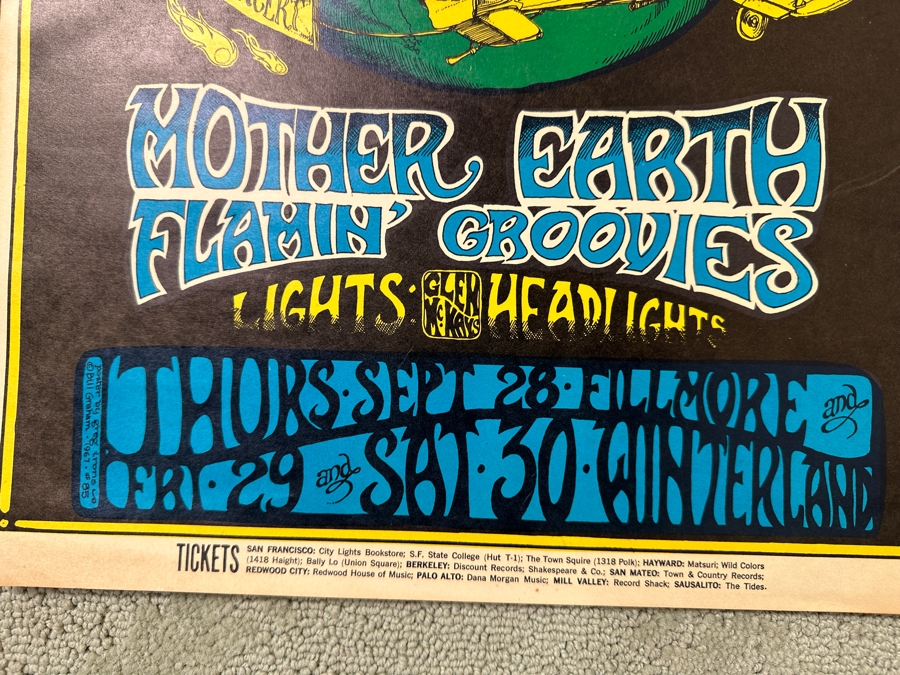 CERT
MOTHER EARTH
FLAMIN' GROOVIES
LIGHTS · GLEN McKAY'S HEADLIGHTS
THURS · SEPT 28 · FILLMORE and
FRI · 29 and SAT · 30 · WINTERLAND
© Bill Graham · 1967 · #85
TICKETS SAN FRANCISCO: City Lights Bookstore; S.F. State College (Hut T-1); The Town Squire (1318 Polk); HAYWARD: Matsuri; Wild Colors
(1418 Haight); Bally Lo (Union Square); BERKELEY: Discount Records; Shakespeare & Co.; SAN MATEO: Town & Country Records;
REDWOOD CITY: Redwood House of Music; PALO ALTO: Dana Morgan Music; MILL VALLEY: Record Shack; SAUSALITO: The Tides.